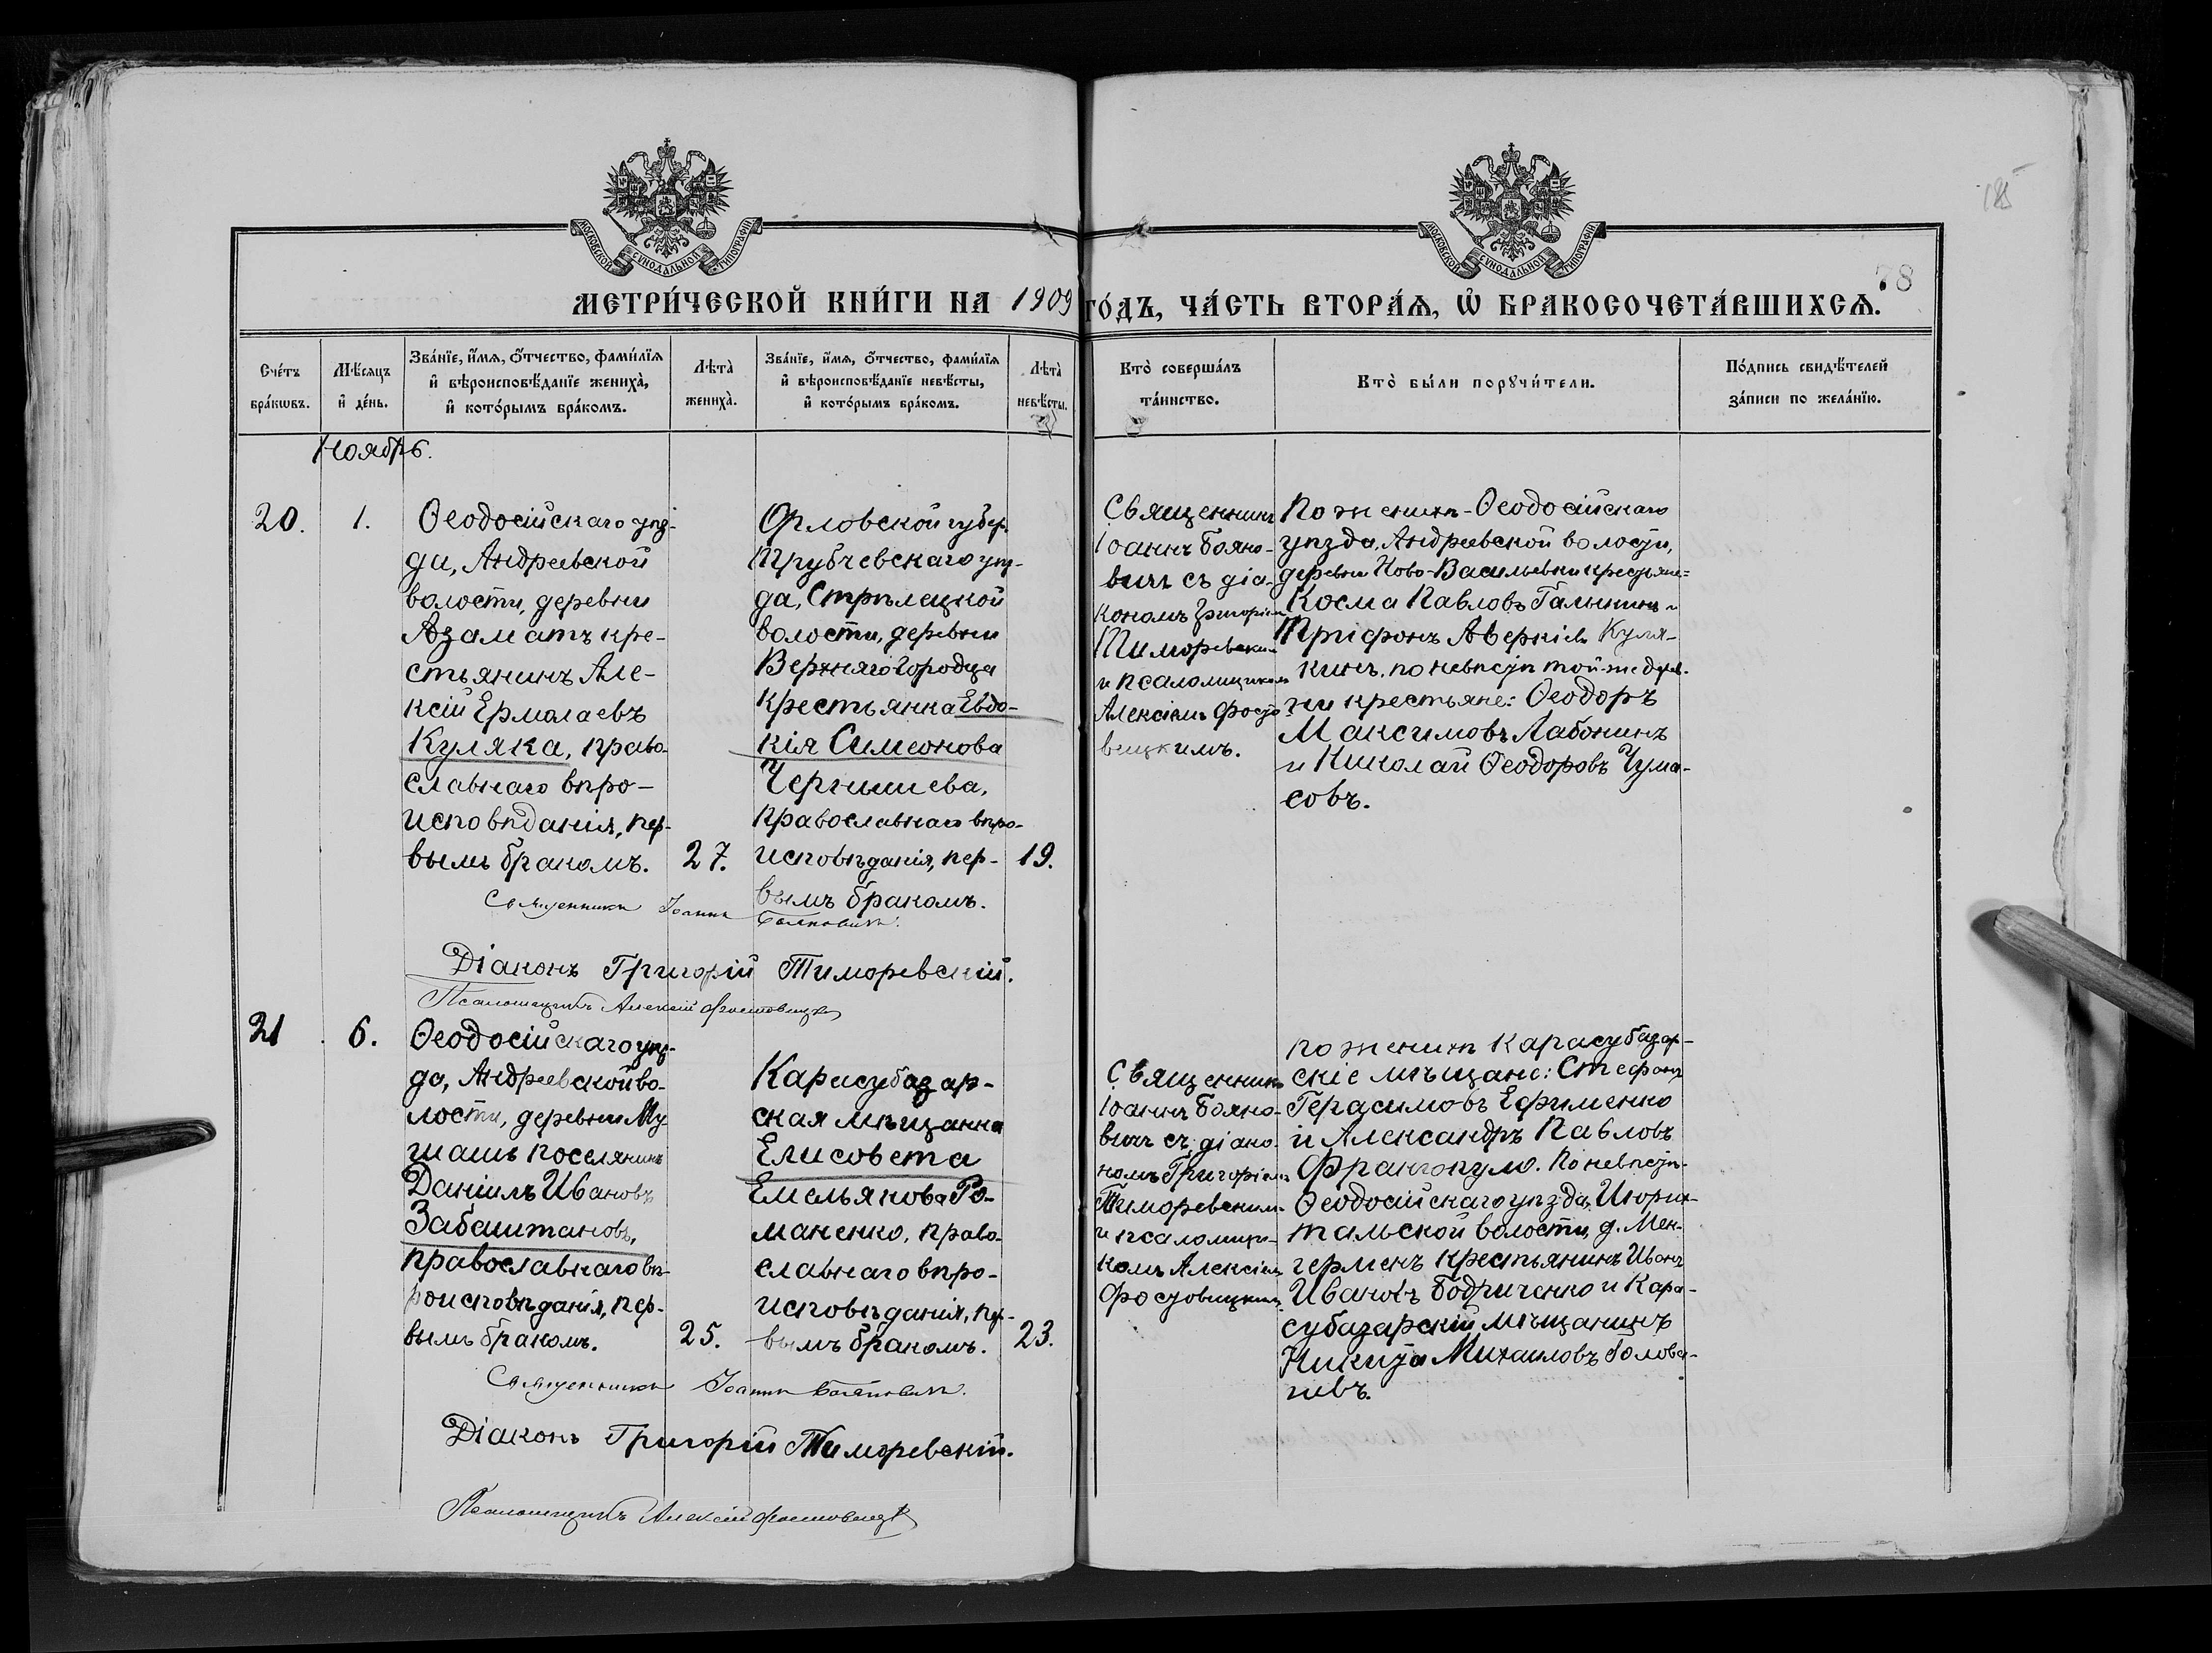 МОСКОВСКОЙ СѴНОДАЛЬНОЙ ТИПОГРАФІИ
МОСКОВСКОЙ СѴНОДАЛЬНОЙ ТИПОГРАФІИ
78
МЕТРИ́ЧЕСКОЙ КНИ́ГИ НА 1909 ГО́ДЪ, ЧА́СТЬ ВТОРА́Ѧ, Ѡ҆ БРАКОСОЧЕТА́ВШИХСѦ.
Сче́тъ бра́кѡвъ.
Мѣ́сяцъ и҆ де́нь.
Зва́нїе, и҆́мѧ, ѻ҆́тчество, фами́лїѧ
и҆ вѣроисповѣ́данїе жениха̀,
и҆ кото́рымъ бра́комъ.
Лѣта̀ жениха̀.
Зва́нїе, и҆́мѧ, ѻ҆́тчество, фами́лїѧ
и҆ вѣроисповѣ́данїе невѣ́сты,
и҆ кото́рымъ бра́комъ.
Лѣта̀ невѣ́сты.
Кто̀ соверша́лъ
та́инство.
Кто̀ бы́ли порꙋчи́тели.
По́дпись свидѣ́телей
за́писи по жела́нїю.
Ноябрь.
20.
1.
Ѳеодосійскаго уѣз-
да, Андреевской
волости, деревни
Азаматъ кре-
стьянинъ Але-
ксій Ермолаевъ
Куляка, право-
славнаго вѣро-
исповѣданія, пер-
вымъ бракомъ.
27.
Орловской губер.
Трубчевскаго уѣз-
да, Стрѣлецкой
волости, деревни
Верхняго Городца
крестьянка Евдо-
кія Симеонова
Чернышева,
православнаго вѣро-
исповѣданія, пер-
вымъ бракомъ.
19.
Священникъ
Іоаннъ Бояно-
вичъ съ діа-
кономъ Григоріем
Тиморевски-
и псаломщиком
Алексіемъ Фосто-
вицкимъ.
По женихѣ - Ѳеодосійскаго
уѣзда, Андреевской волости,
деревни Ново-Васильевки крестьяне=
Косма Павловъ Галынинъ и
Трифонъ Аверкіев Куля-
кинъ, по невѣстѣ той-же дерев-
ни крестьяне: Ѳеодоръ
Максимовъ Лабонинъ
и Николай Ѳеодоровъ Чума-
совъ.
Священникъ Іоаннъ Бояновичъ.
Діаконъ Григорій Тиморевскій.
Псаломщикъ Алексій Фостовицкій
21
6.
Ѳеодосійскаго уѣз-
да, Андреевской во-
лости, деревни Му
шашъ поселянинъ
Даніилъ Ивановъ
Забаштановъ,
православнаго вѣ-
роисповѣданія, пер-
вымъ бракомъ.
25.
Карасубазар-
ская мѣщанка
Елисовета
Емельянова Ро-
маненко, право-
славнаго вѣро-
исповѣданія, пер-
вымъ бракомъ.
23.
Священникъ
Іоаннъ Бояно-
вичъ съ діако-
номъ Григоріемъ
Тиморевским-
и псаломщи-
комъ Алексіемъ
Фостовицкимъ.
по женихѣ Карасубазар-
скіе мѣщане: Стефанъ
Герасимовъ Ефименко
и Александръ Павловъ
Франгопуло. По невѣстѣ-
Ѳеодосійскаго уѣзда, Ички-
тальской волости, д. Мен-
герменъ крестьянинъ Иванъ
Ивановъ Бодриченко и Кара-
субазарскій мѣщанинъ
Никита Михаиловъ Голова-
невъ.
Священникъ Іоаннъ Бояновичъ.
Діаконъ Григорій Тиморевскій.
Псаломщикъ Алексій Фостовицкій